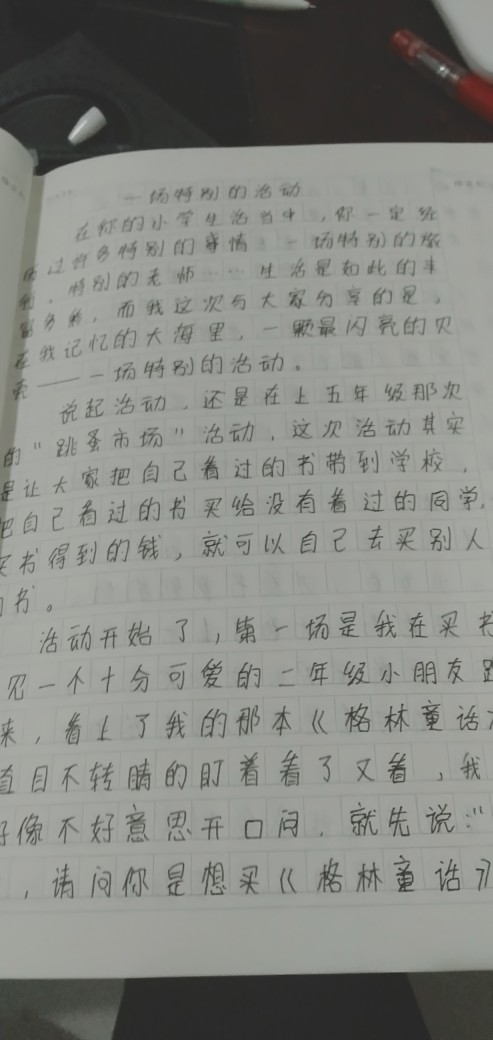 一场特别的活动
在你的小学生活当中，你一定经
历过许多特别的事情 一场特别的旅
，特别的老师……生活是如此的丰
富多彩，而我这次与大家分享的是，
在我记忆的大海里，一颗最闪亮的贝
壳——一场特别的活动。
说起活动，还是在上五年级那次
的“跳蚤市场”活动，这次活动其实
是让大家把自己看过的书带到学校，
把自己看过的书买给没有看过的同学，
买书得到的钱，就可以自己去买别人
书。
活动开始了，第一场是我在买书
见一个十分可爱的二年级小朋友跑
来，看上了我的那本《格林童话》
直目不转睛的盯着看了又看，我
好像不好意思开口问，就先说：“
，请问你是想买《格林童话》